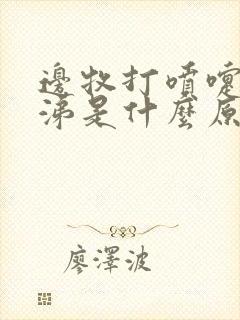 邊牧打噴嚏
涕是什麼原
廖澤波